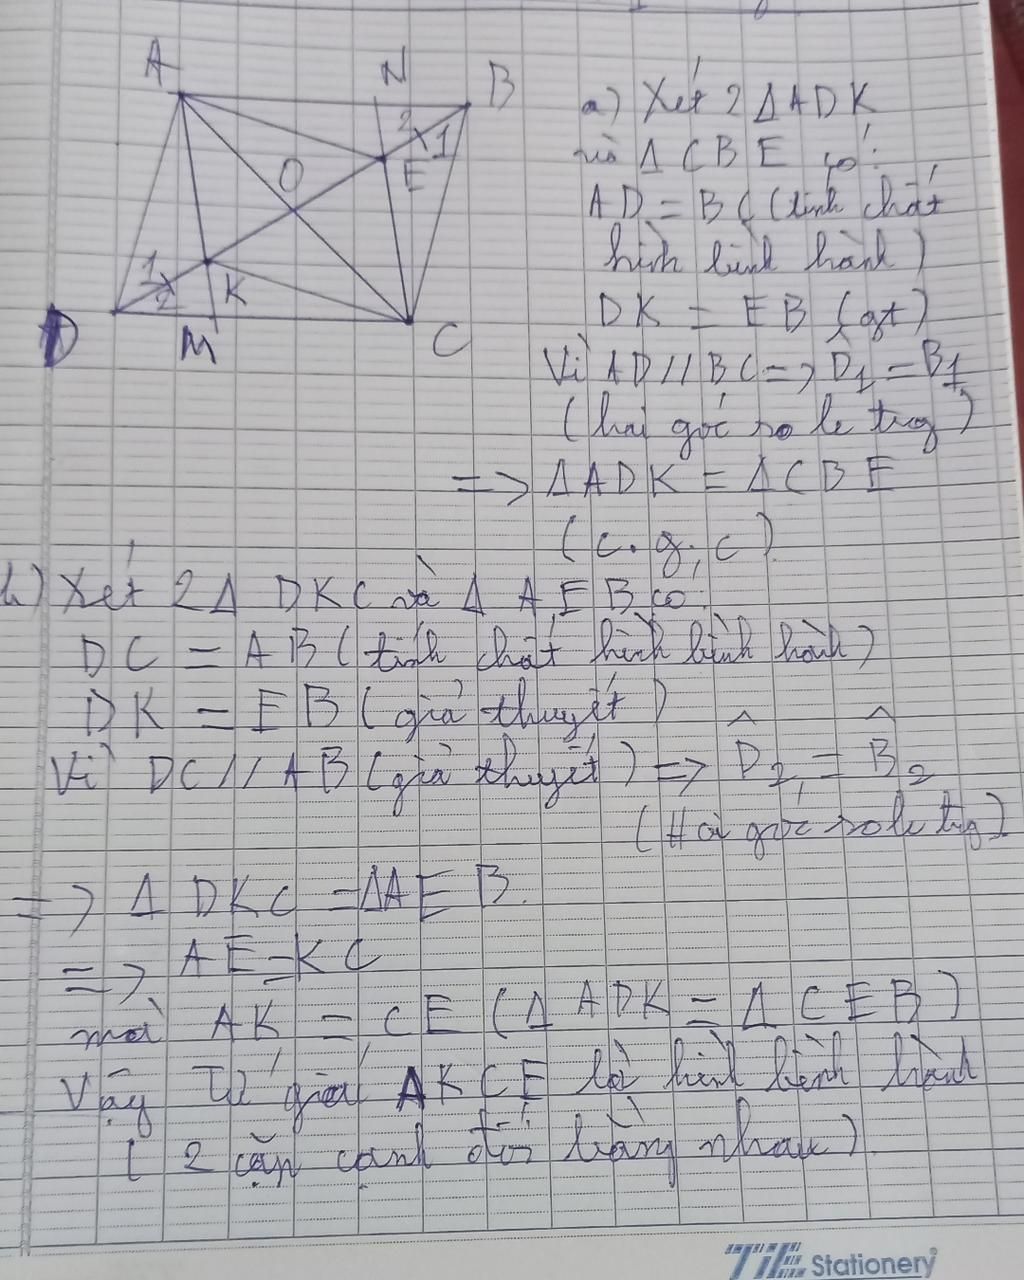 A
N
B
2
1
E
O
1
2
K
D
M
C
a) Xét 2 Δ ADK
và Δ CBE có:
AD = BC (tính chất
hình bình hành)
DK = EB (gt)
Vì AD // BC => D̂1 = B̂1
(hai góc so le trg)
=> Δ ADK = Δ CBE
(c.g.c)
b) Xét 2 Δ DKC và Δ AEB có:
DC = AB (tính chất hình bình hành)
DK = EB (giả thuyết)
Vì DC // AB (giả thuyết) => D̂2 = B̂2
(Hai góc so le trg)
=> Δ DKC = ΔAEB.
=> AE = KC
mà AK = CE (Δ ADK = Δ CEB)
Vậy Tứ giác AKCE là hình bình hành
(2 cặp cạnh đối bằng nhau).
TiE Stationery